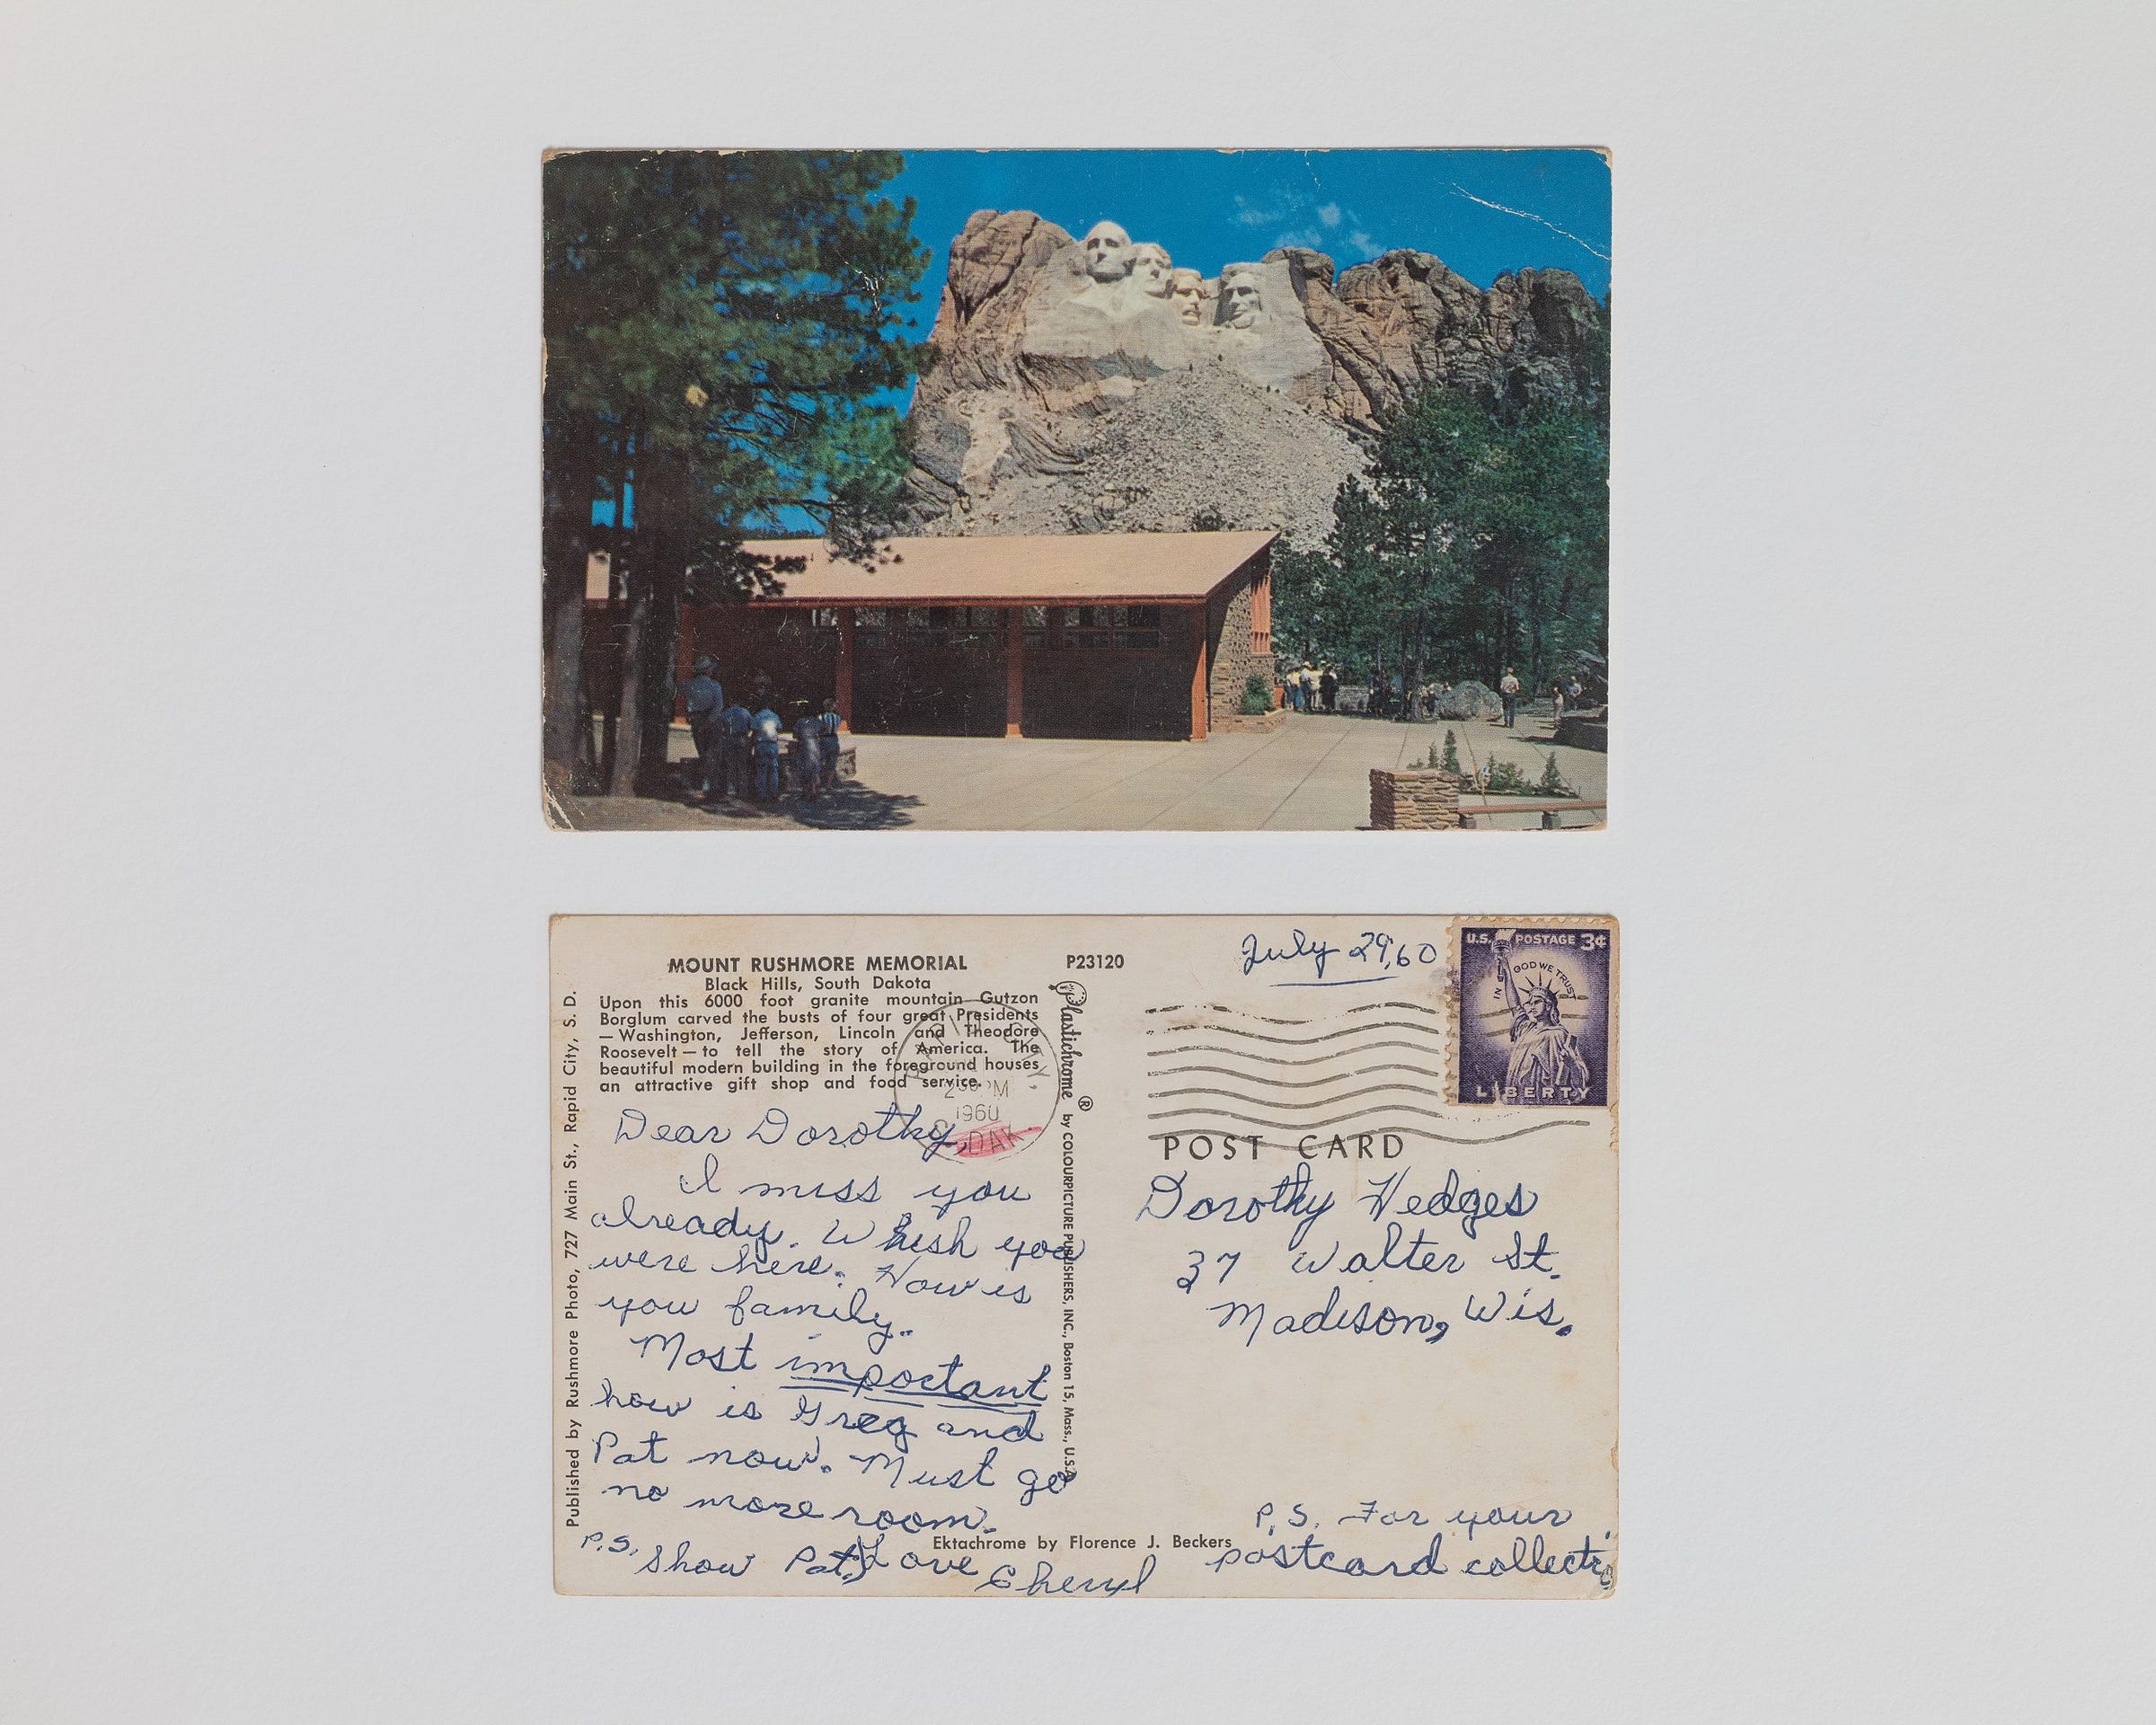 MOUNT RUSHMORE MEMORIAL
Black Hills, South Dakota
Upon this 6000 foot granite mountain Gutzon
Borglum carved the busts of four great Presidents
— Washington, Jefferson, Lincoln and Theodore
Roosevelt — to tell the story of America. The
beautiful modern building in the foreground houses
an attractive gift shop and food service.
P23120
July 29, 60
U.S. POSTAGE 3¢
IN GOD WE TRUST
LIBERTY
PM
1960
DAK.
Published by Rushmore Photo, 727 Main St., Rapid City, S. D.
Plastichrome ® by COLOURPICTURE PUBLISHERS, INC., Boston 15, Mass., U.S.A.
Dear Dorothy,
I miss you
already. Whish you
were here. How is
you family.
Most important
how is Greg and
Pat now. Must go
no more room.
P.S. Show Pat.
Love
Cheryl
Ektachrome by Florence J. Beckers
POST CARD
Dorothy Hedges
37 Walter St.
Madison, Wis.
P.S. For your
postcard